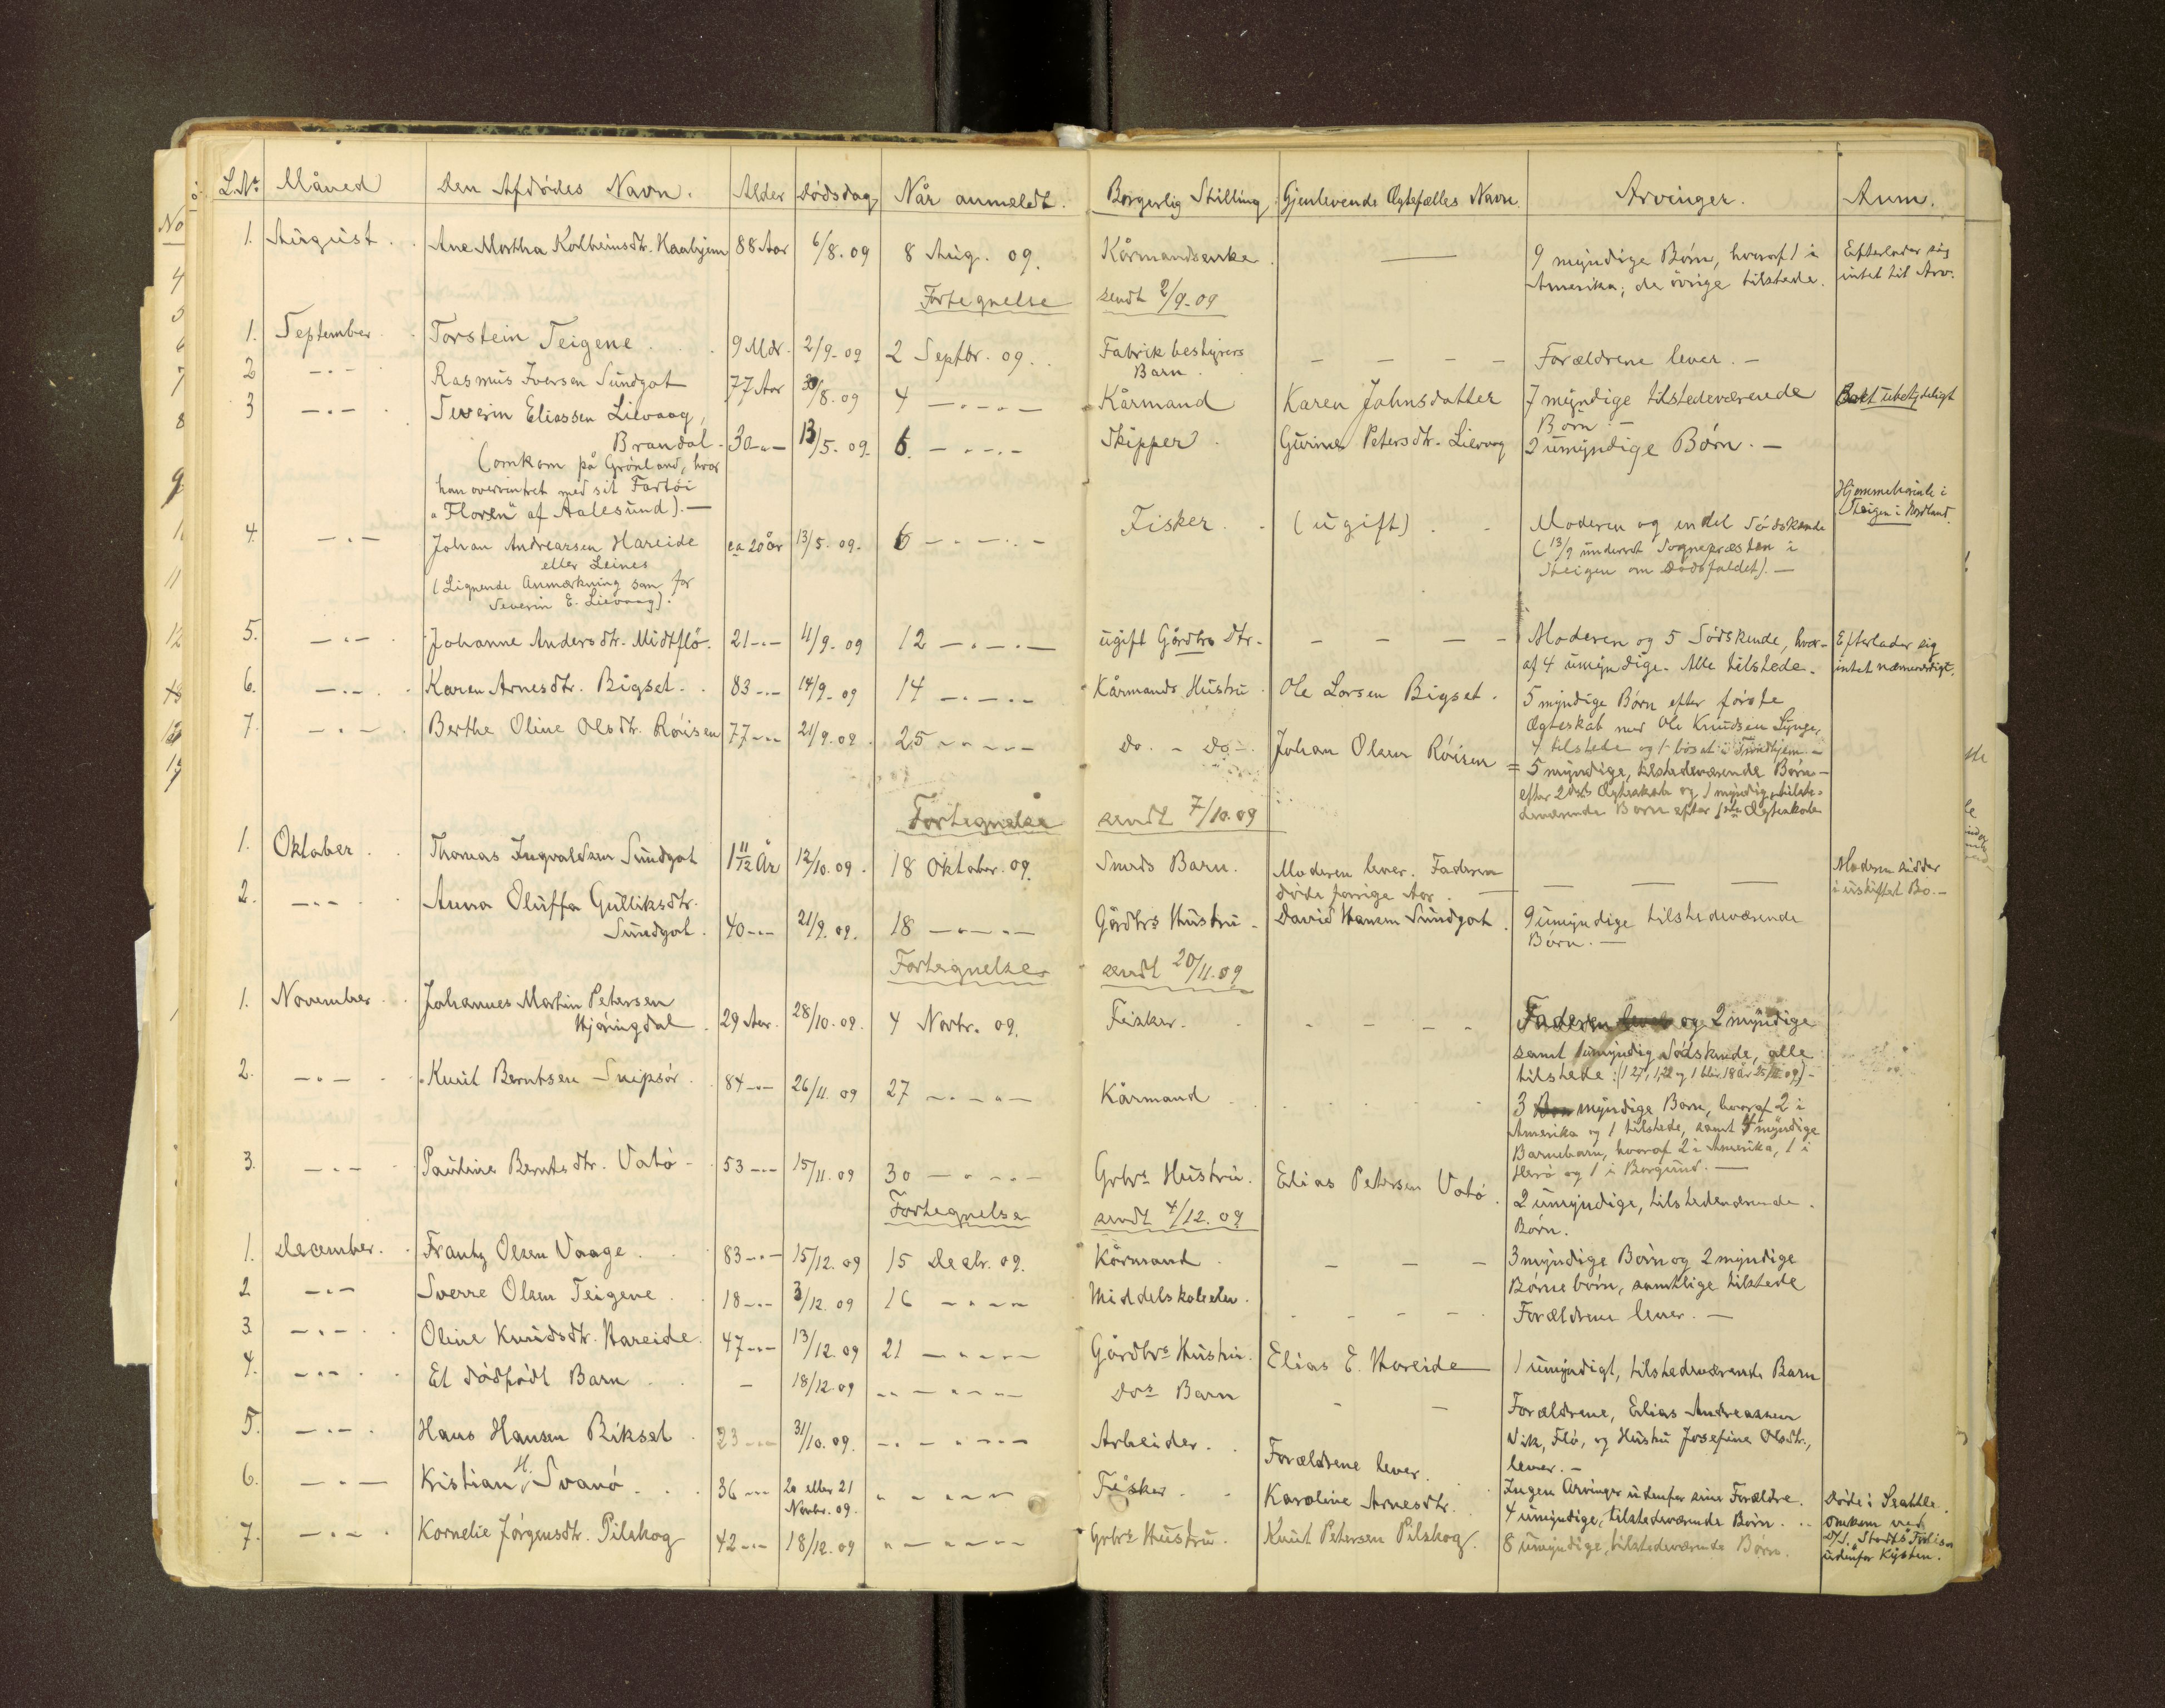 L.Nr. Måned Den Afdödes Navn. Alder Dödsdag Når anmeldt. Borgerlig Stilling Gjenlevende Ægtefælles Navn. Arvinger. Anm.
1. August Ane Martha Kolbeinsdtr. Haahjem 88 Aar 6/8. 09 8 Aug. 09. Kårmandsenke — 9 myndige Börn, hvoraf 1 i Efterlader sig
Amerika; de övrige tilstede. intet til Arv.
Fortegnelse sendt 2/9-09
1. September Torstein Teigene 9 Mdr. 2/9-09 2 Septbr. 09. Fabrikbestyrers - - - - Forældrene lever. -
Barn.
2 -"- Rasmus Iversen Sundgot 77 Aar 30/8. 09 4 -"-"- Kårmand Karen Johnsdatter 7 myndige tilstedeværende Boet ubetydeligt
Börn. -
3 -"- Severin Eliassen Lievaag,
Brandal - 30 -"- 13/5. 09. 6. -"-"- Skipper. Gurine Petersdtr. Lievaag 2 umyndige Börn. -
(omkom på Grönland, hvor
han overvintret med sit Fartöi
"Floren" af Aalesund). -
4. -"- Johan Andreassen Hareide ca 20 år 13/5. 09. 6 -"-"- Fisker. (ugift) Moderen og endel Södskende Hjemmehörende i
eller Leines (13/9 underret Sognepræsten i Steigen i Nordland.
(Lignende Anmærkning som for Steigen om Dödsfaldet). -
Severin E. Lievaag).
5. -"- Johanne Andersdtr. Midtflö. 21 -"- 11/9. 09 12 -"-"- ugift Gårdbrs Dtr. - - - - Moderen og 5 Södskende, hvor- Efterlader sig
af 4 umyndige. Alle tilstede. intet nævneværdigt.
6. -"- Karen Arnesdtr. Bigset. 83 -"- 14/9-09 14 -"-"- Kårmands Hustru. Ole Larsen Bigset. 5 myndige Börn efter förste
Ægteskab med Ole Knudsen Lynge,
4 tilstede og 1 bosat i Trondhjem. -
7. -"- Berthe Oline Olsdtr. Röisen 77 -"- 21/9. 09. 25 -"-"- Do. - Do - Johan Olsen Röisen = 5 myndige, tilstedeværende Börn -
efter 2det Ægteskab og 1 myndig, tilste-
deværende Barn efter 1ste Ægteskab
Fortegnelse sendt 7/10. 09
1. Oktober Thomas Ingvaldsen Sundgot 1 11/12 År 12/10. 09. 18 Oktober. 09. Smeds Barn. Moderen lever. Faderen — — — Moderen sidder
döde forrige Aar. i uskiftet Bo. -
2. -"- Anna Oluffa Gulliksdtr.
Sundgot. 40 -"- 21/9. 09. 18 -"-"- Gårdbrs Hustru - David Hansen Sundgot. 9 umyndige tilstedeværende
Börn. -
Fortegnelse sendt 20/11. 09
1. November Johannes Martin Petersen
Hjöringdal. 29 Aar. 28/10. 09. 4 Novbr. 09. Fisker. - - - - Faderen lever og 2 myndige
samt 1 umyndig Södskende, alle
tilstede: (1 27, 1, 22 og 1 blir 18 år 25/12 09) -
2. -"- Knut Berntsen Snipsör. 84 -"- 26/11. 09 27 -"-"- Kårmand 3 myndige Barn, hvoraf 2 i
Amerika og 1 tilstede, samt 4 myndige
Barnebarn, hvoraf 2 i Amerika, 1 i
Herö og 1 i Borgund. -
3. -"- Pauline Berntsdtr. Vatö - 53 -"- 15/11. 09 30 -"-"- Grbrs Hustru. Elias Petersen Vatö. 2 umyndige, tilstedeværende
Börn.
Fortegnelse sendt 4/12. 09
1. December. Frantz Olsen Vaage. 83 -"- 15/12. 09 15 Decbr. 09. Kårmand - - - 3 myndige Börn og 2 myndige
Börneborn, samtlige tilstede
2 -"- Sverre Olsen Teigene. 18 -"- 3/12. 09 16 -"-"- Middelskoleelev. - - - - Forældrene lever. -
3. -"- Oline Knudsdtr. Hareide. 47 -"- 13/12. 09 21 -"-"- Gårdbrs Hustru. Elias E. Hareide 1 umyndigt, tilstedeværende Barn
4. -"- Et dödfödt Barn - 18/12. 09 -"-"- Dos Barn - - Forældrene, Elias Andreassen
Vik, Flö, og Hustru Josefine Olsdtr.,
lever. -
5. -"- Hans Hansen Bikset. 23 -"- 31/10. 09. -"-"- Arbeider. Forældrene lever. Ingen Arvinger udenfor sine Forældre. Döde i Seattle.
6. -"- Kristian H. Svanö. 36 -"- 20 eller 21 -"-"- Fisker. Karoline Arnesdtr. 4 umyndige, tilstedeværende Börn. Omkom ved
Novbr. 09. D/S. "Stadts" Forlis
udenfor Kysten.
7. -"- Kornelie Jörgensdtr. Pilskog 42 -"- 18/12. 09 -"-"- Grbrs Hustru. Knut Petersen Pilskog. 8 umyndige, tilstedeværende Börn.